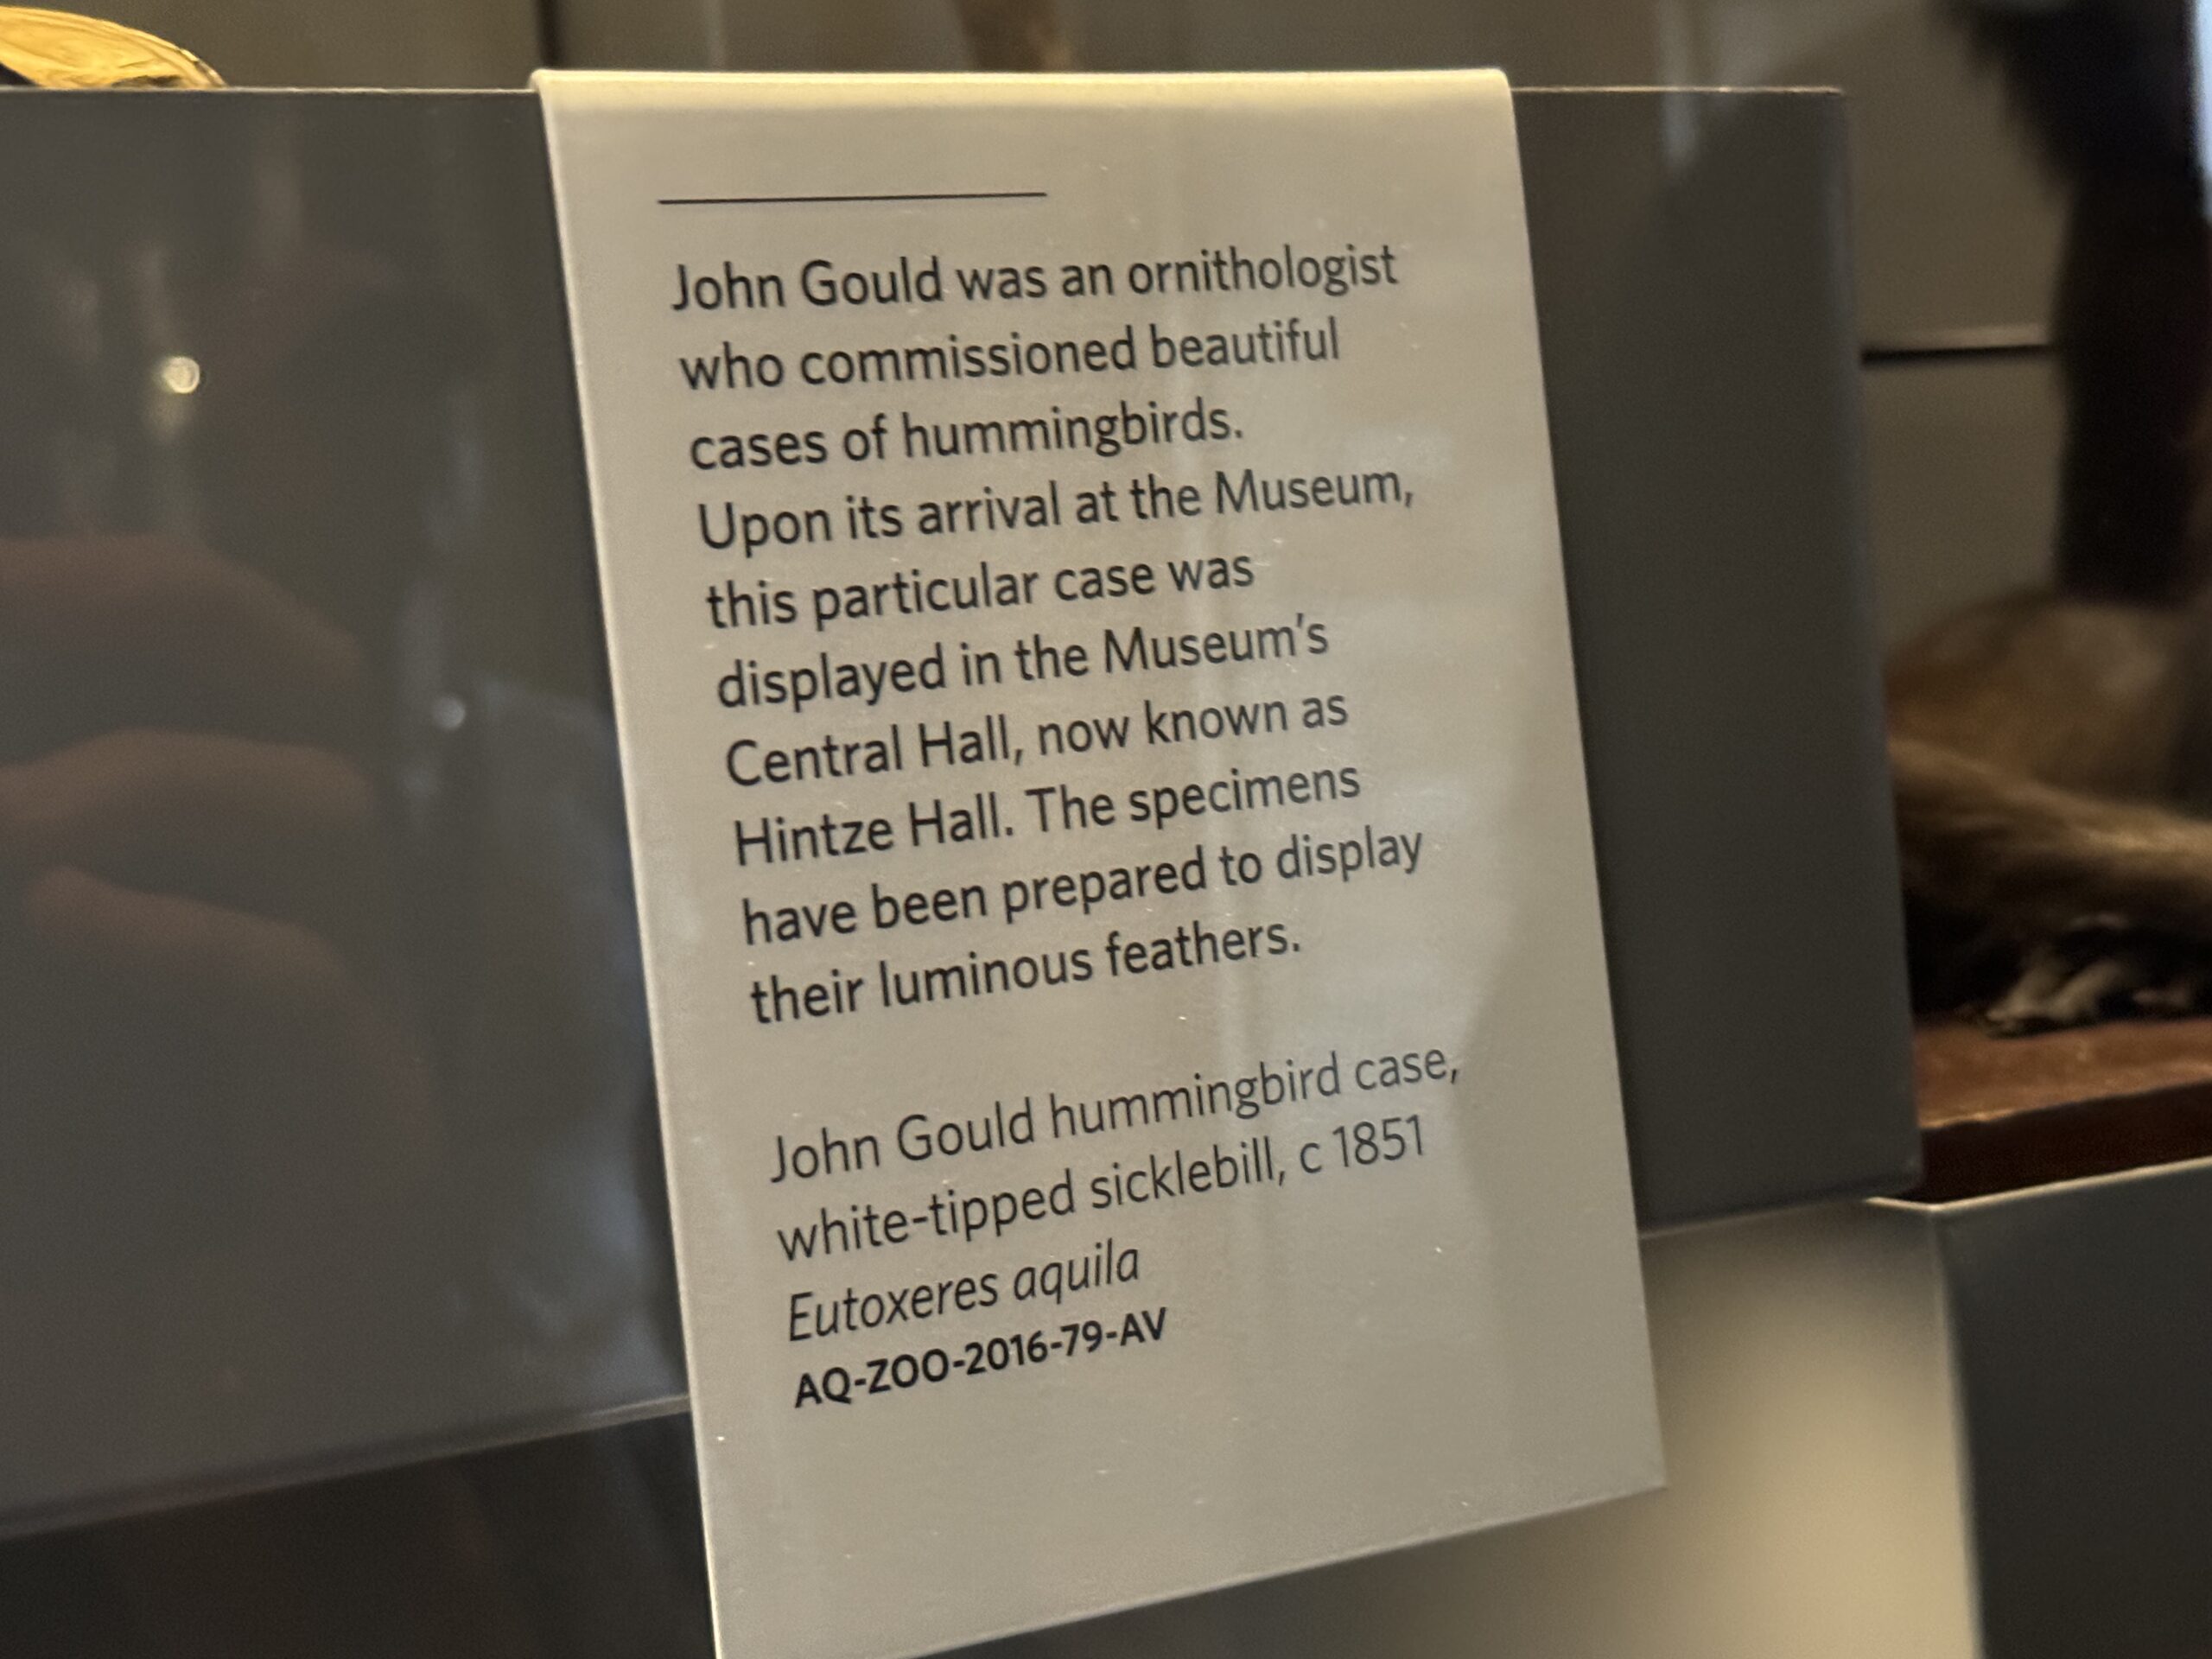 John Gould was an ornithologist
who commissioned beautiful
cases of hummingbirds.
Upon its arrival at the Museum,
this particular case was
displayed in the Museum's
Central Hall, now known as
Hintze Hall. The specimens
have been prepared to display
their luminous feathers.
John Gould hummingbird case,
white-tipped sicklebill, c 1851
Eutoxeres aquila
AQ-ZOO-2016-79-AV